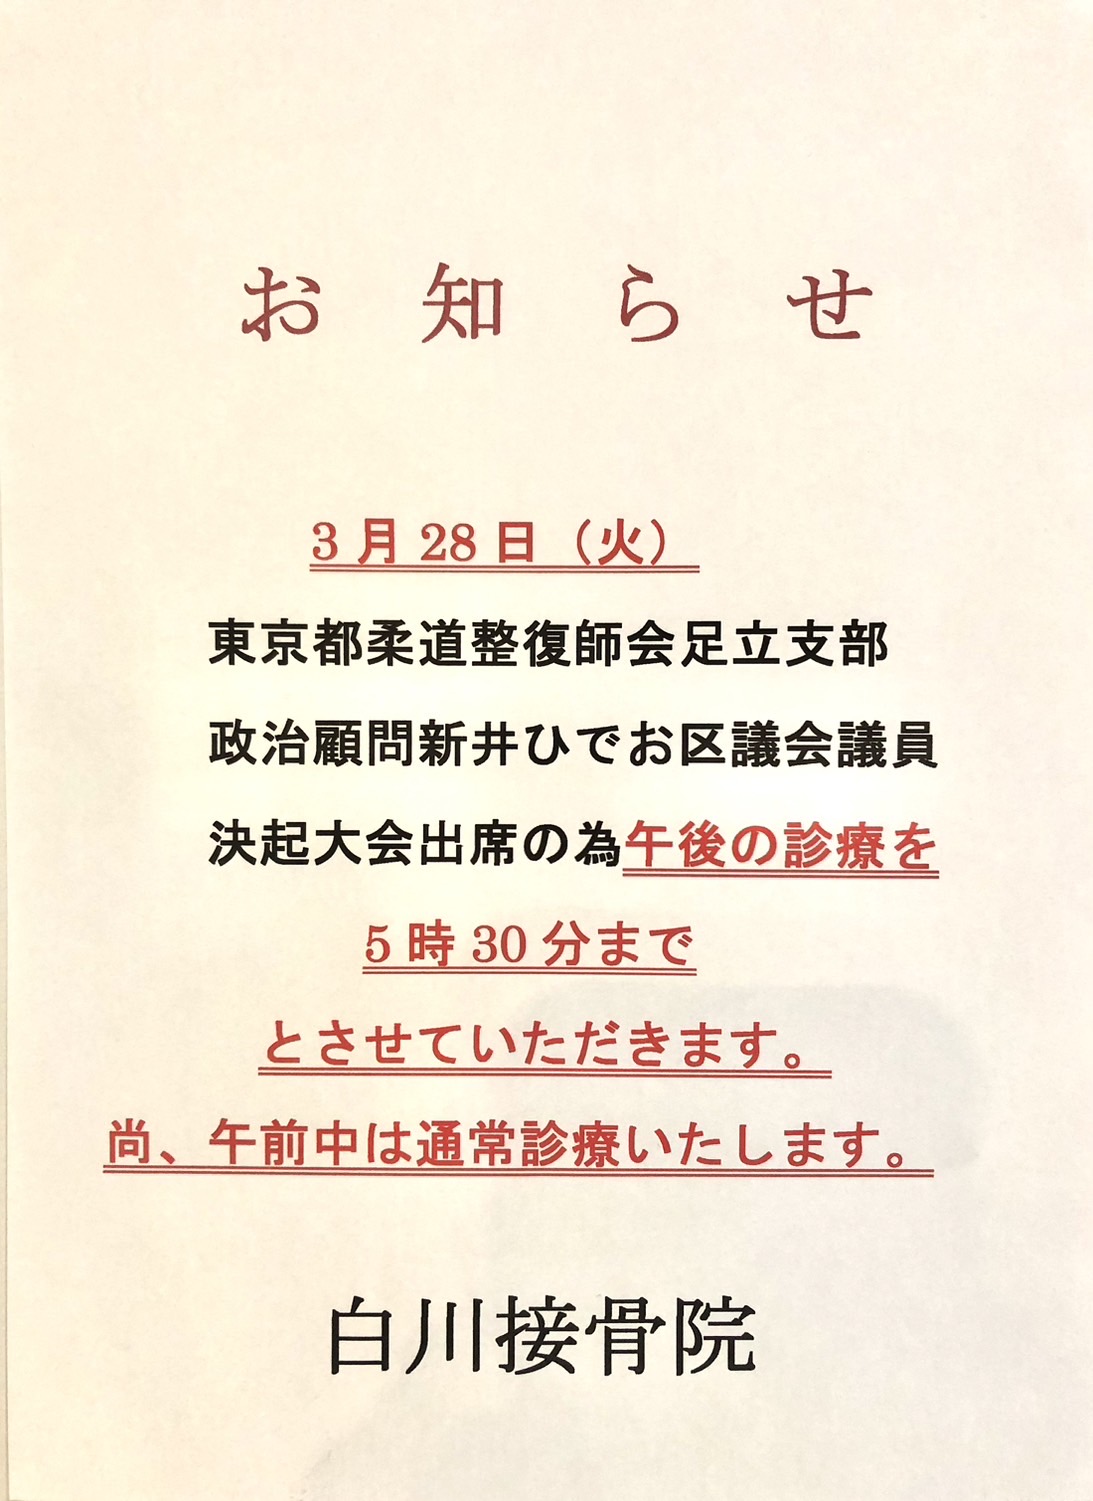 お知らせ
3月28日（火）
東京都柔道整復師会足立支部
政治顧問新井ひでお区議会議員
決起大会出席の為午後の診療を
5時30分まで
とさせていただきます。
尚、午前中は通常診療いたします。
白川接骨院